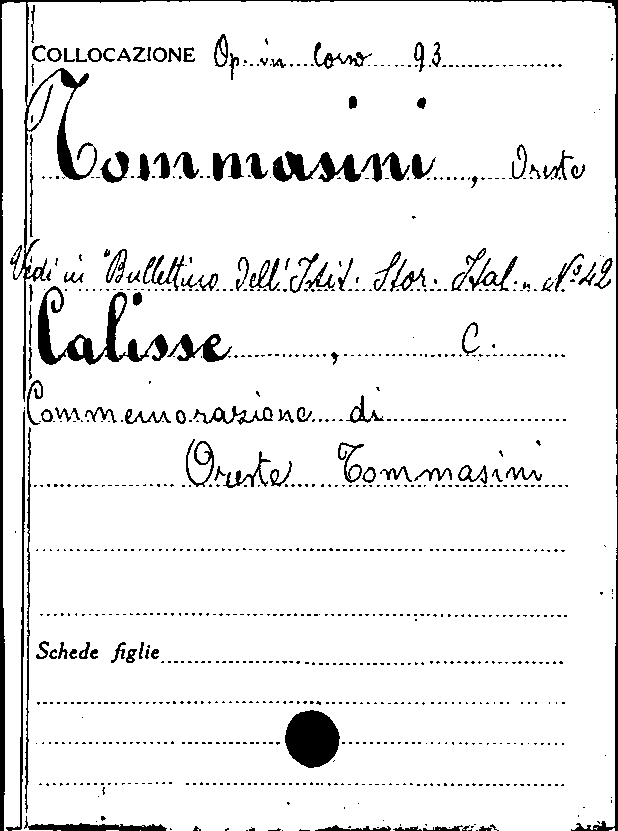 COLLOCAZIONE Op. in Corso 93
Tommasini, Oreste
Vedi in "Bullettino Dell'Istit. Stor. Ital. „ Nº 42
Calisse, C.
Commemorazione di
Oreste Tommasini
Schede figlie